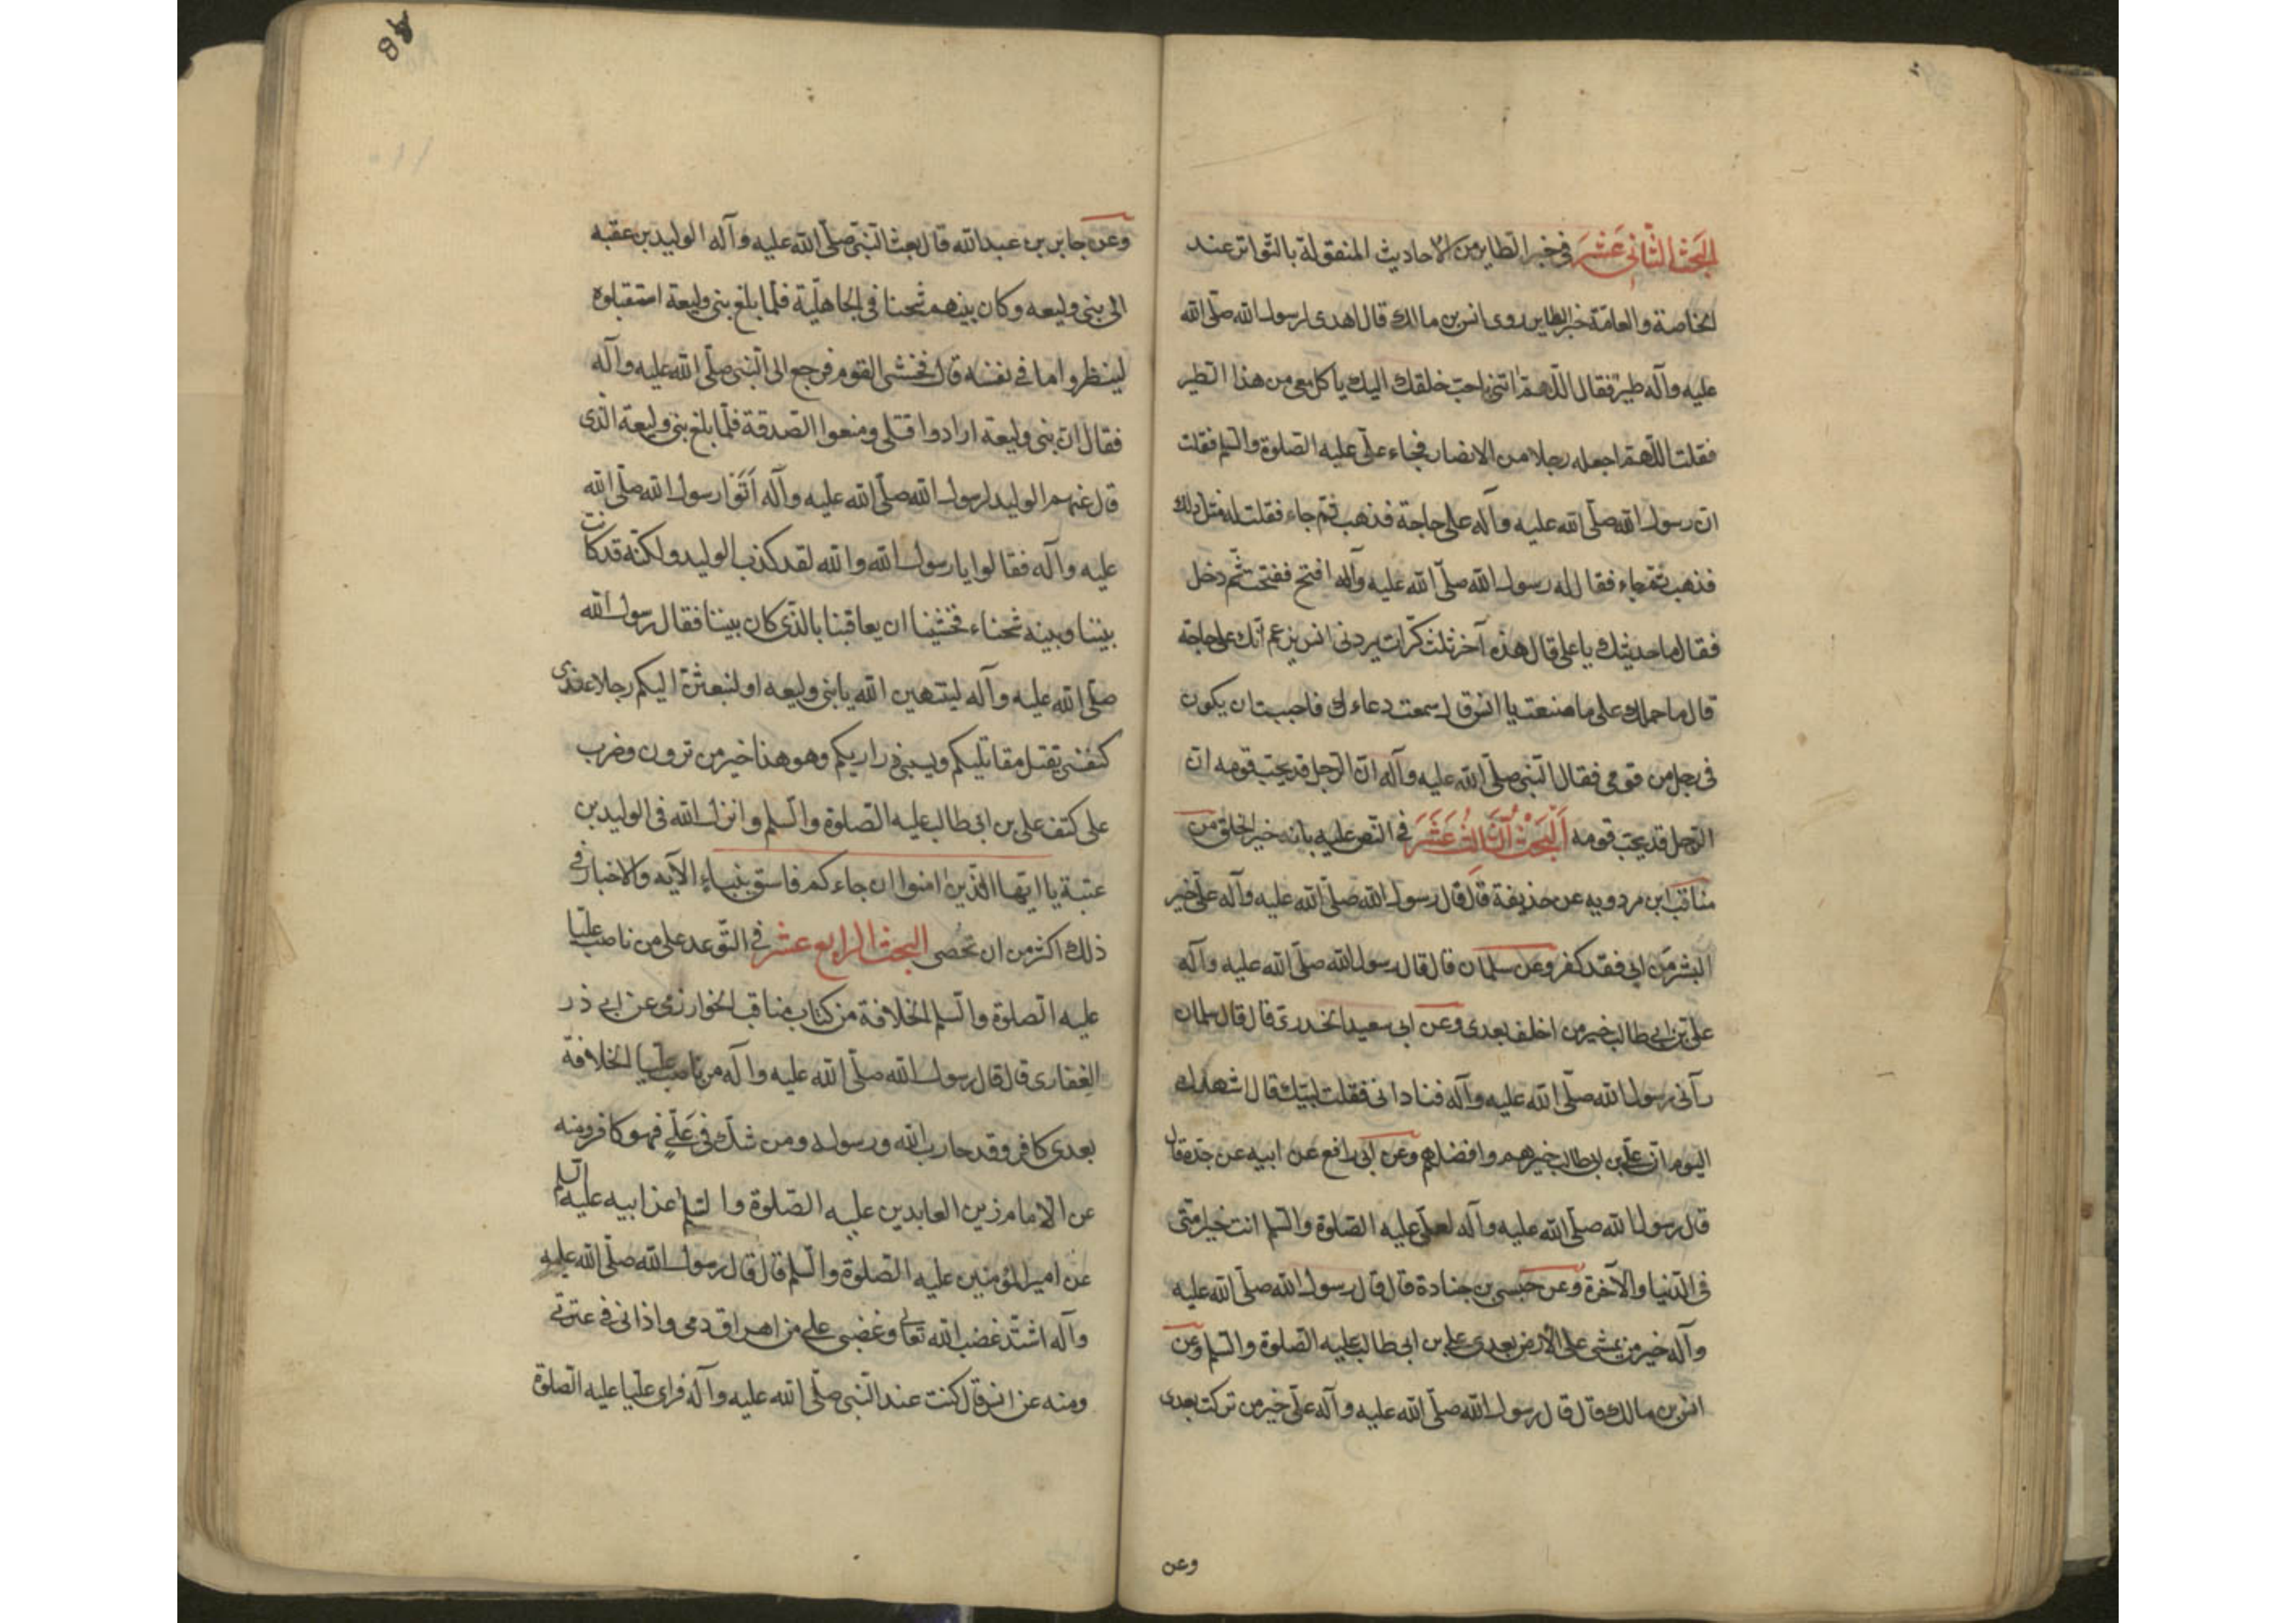 البحث الثاني عشر في خبر الطاير من الاحاديث المنقولة بالتواتر عند
الخاصة والعامة خبر الطاير روى انس بن مالك قال اهدى لرسول الله صلى الله
عليه وآله طير فقال اللهم ائتني باحب خلقك اليك ياكل معي من هذا الطير
فقلت اللهم اجعله رجلا من الانصار فجاء علي عليه الصلوة والسلم فقلت
ان رسول الله صلى الله عليه وآله على حاجة فذهب ثم جاء فقلت له مثل ذلك
فذهب ثم جاء فقال له رسول الله صلى الله عليه وآله افتح ففتحت ثم دخل
فقال ما حديثك يا علي قال هذه آخر ثلث كرات يردني انس يزعم انك على حاجة
قال ما حملك على ما صنعت يا انس قال سمعت دعاءك فاحببت ان يكون
في رجل من قومي فقال النبي صلى الله عليه وآله ان الرجل قد يحب قومه ان
الرجل قد يحب قومه البحث الثالث عشر في النص عليه بانه خير الخلق من
مناقب ابن مردويه عن حذيفة قال قال رسول الله صلى الله عليه وآله علي خير
البشر من ابى فقد كفر وعن سلمان قال قال رسول الله صلى الله عليه وآله
علي بن ابي طالب خير من اخلف بعدي وعن ابي سعيد الخدري قال قال سلمان
رآني رسول الله صلى الله عليه وآله فناداني فقلت لبيك قال اشهدك
اليوم ان علي بن ابي طالب خيرهم وافضلهم وعن ابي رافع عن ابيه عن جده قال
قال رسول الله صلى الله عليه وآله لعلي عليه الصلوة والسلم انت خير امتي
في الدنيا والآخرة وعن حبسي بن جنادة قال قال رسول الله صلى الله عليه
وآله خير من يمشي على الارض بعدي علي بن ابي طالب عليه الصلوة والسلم وعن
انس بن مالك قال قال رسول الله صلى الله عليه وآله علي خير من تركت بعدي
وعن
88
وعن جابر بن عبد الله قال بعث النبي صلى الله عليه وآله الوليد بن عقبه
الى بني وليعه وكان بينهم شحنا في الجاهلية فلما بلغ بني وليعة استقبلوه
لينظروا ما في نفسه قال فخشي القوم فرجع الى النبي صلى الله عليه وآله
فقال ان بني وليعة ارادوا قتلي ومنعوا الصدقة فلما بلغ بني وليعة الذي
قال عنهم الوليد لرسول الله صلى الله عليه وآله اتوا رسول الله صلى الله
عليه وآله فقالوا يا رسول الله والله لقد كذب الوليد ولكنه قد كانت
بيننا وبينه شحناء فخشينا ان يعاقبنا بالذي كان بيننا فقال رسول الله
صلى الله عليه وآله لينتهين الله يا بني وليعه او لنبعثن اليكم رجلا عندي
كنفسي يقتل مقاتليكم ويسبي ذراريكم وهو هذا خير من ترون وضرب
على كتف علي بن ابي طالب عليه الصلوة والسلم وانزل الله في الوليد بن
عتبة يا ايها الذين امنوا ان جاءكم فاسق بنباء الآيه والاخبار في
ذلك اكثر من ان تحصى البحث الرابع عشر في التوعد على من ناصب عليا
عليه الصلوة والسلم الخلافة من كتاب مناقب الخوارزمي عن ابي ذر
الغفاري قال قال رسول الله صلى الله عليه وآله من ناصب عليا الخلافة
بعدي كافر وقد حارب الله ورسوله ومن شك في علي فهو كافر ومنه
عن الامام زين العابدين عليه الصلوة والسلم عن ابيه عليه السلم
عن امير المؤمنين عليه الصلوة والسلم قال قال رسول الله صلى الله عليه
وآله اشتد غضب الله تعالى وغضبي على من اهراق دمي واذاني في عترتي
ومنه عن انس قال كنت عند النبي صلى الله عليه وآله فراى عليا عليه الصلوة